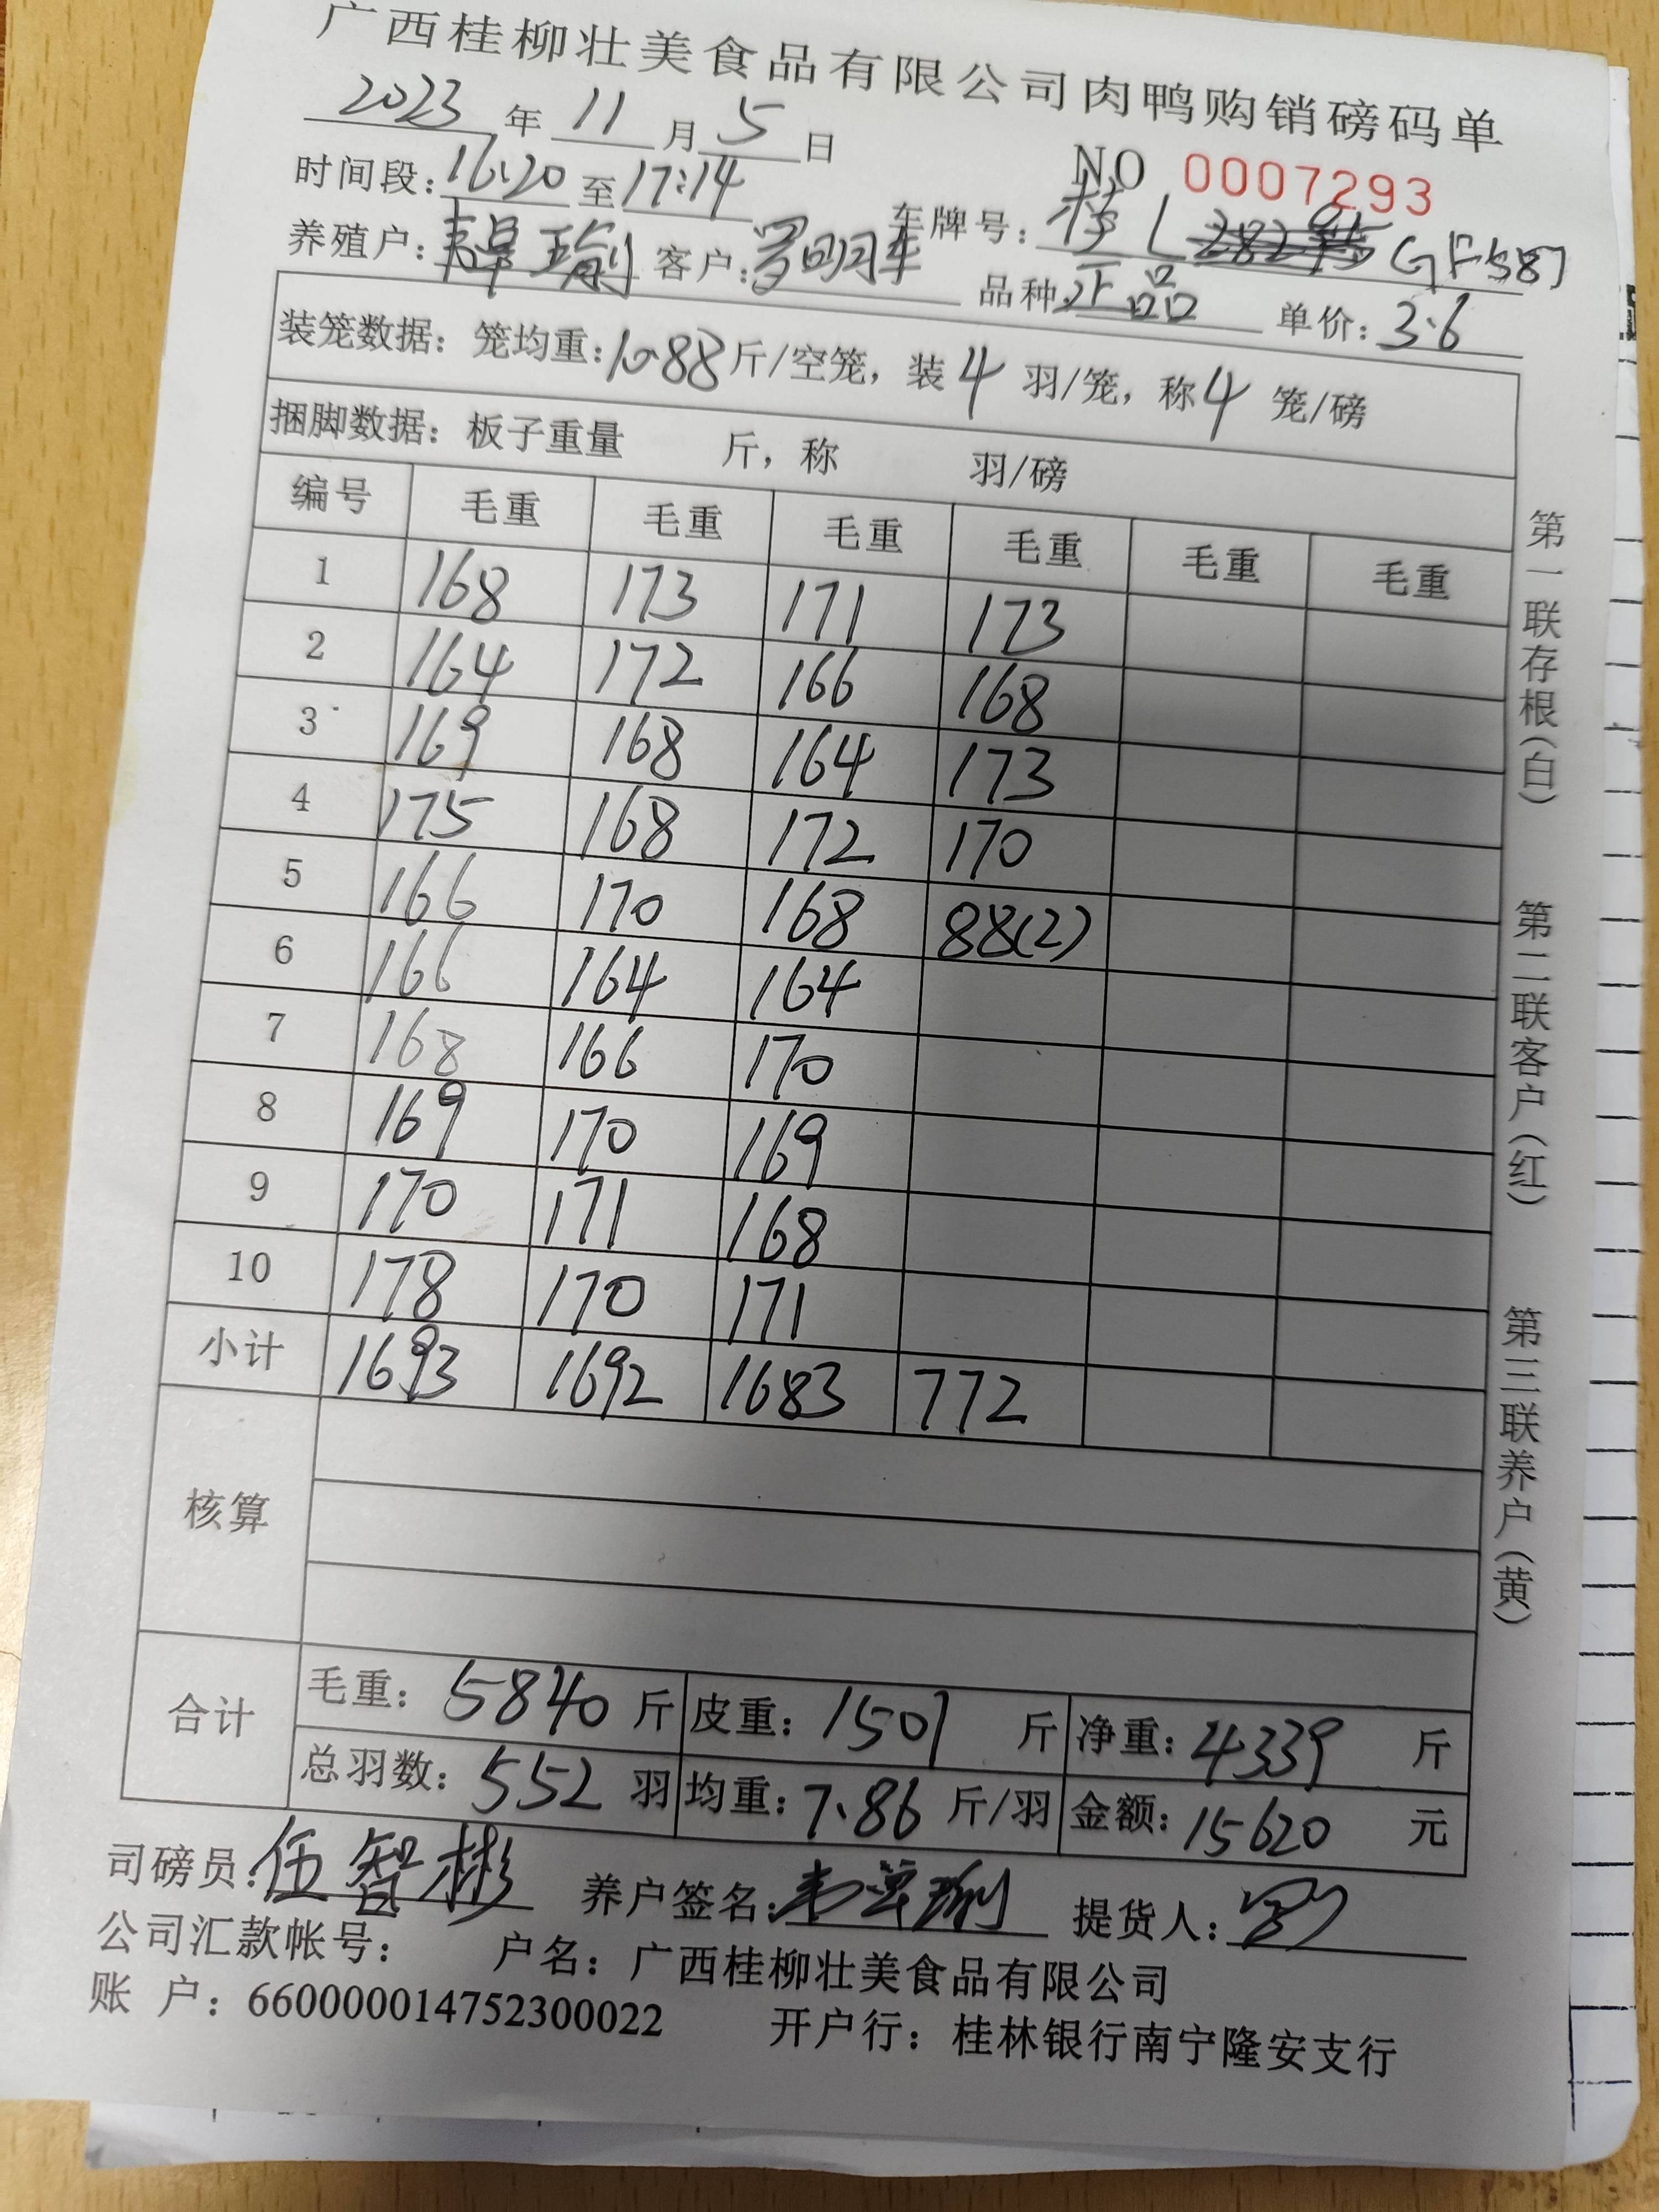 广西桂柳壮美食品有限公司肉鸭购销磅码单
2023年11月5日
NO 0007293
时间段:16:20至17:14 车牌号:桂L GF587
养殖户:韦昙瑜 客户:罗明车 品种:正品 单价:3.6
装笼数据:笼均重:10.88斤/空笼,装4羽/笼,称4笼/磅
捆脚数据:板子重量 斤,称 羽/磅
编号 毛重 毛重 毛重 毛重 毛重 毛重
1 168 173 171 173
2 164 172 166 168
3 169 168 164 173
4 175 168 172 170
5 166 170 168 88(2)
6 166 164 164
7 168 166 170
8 169 170 169
9 170 171 168
10 178 170 171
小计 1693 1692 1683 772
核算
合计 毛重:5840斤 皮重:1501斤 净重:4339斤
总羽数:552羽 均重:7.86斤/羽 金额:15620元
司磅员:伍智彬 养户签名: 提货人:
公司汇款帐号: 户名:广西桂柳壮美食品有限公司
账 户:660000014752300022 开户行:桂林银行南宁隆安支行
第一联存根(白) 第二联客户(红) 第三联养户(黄)